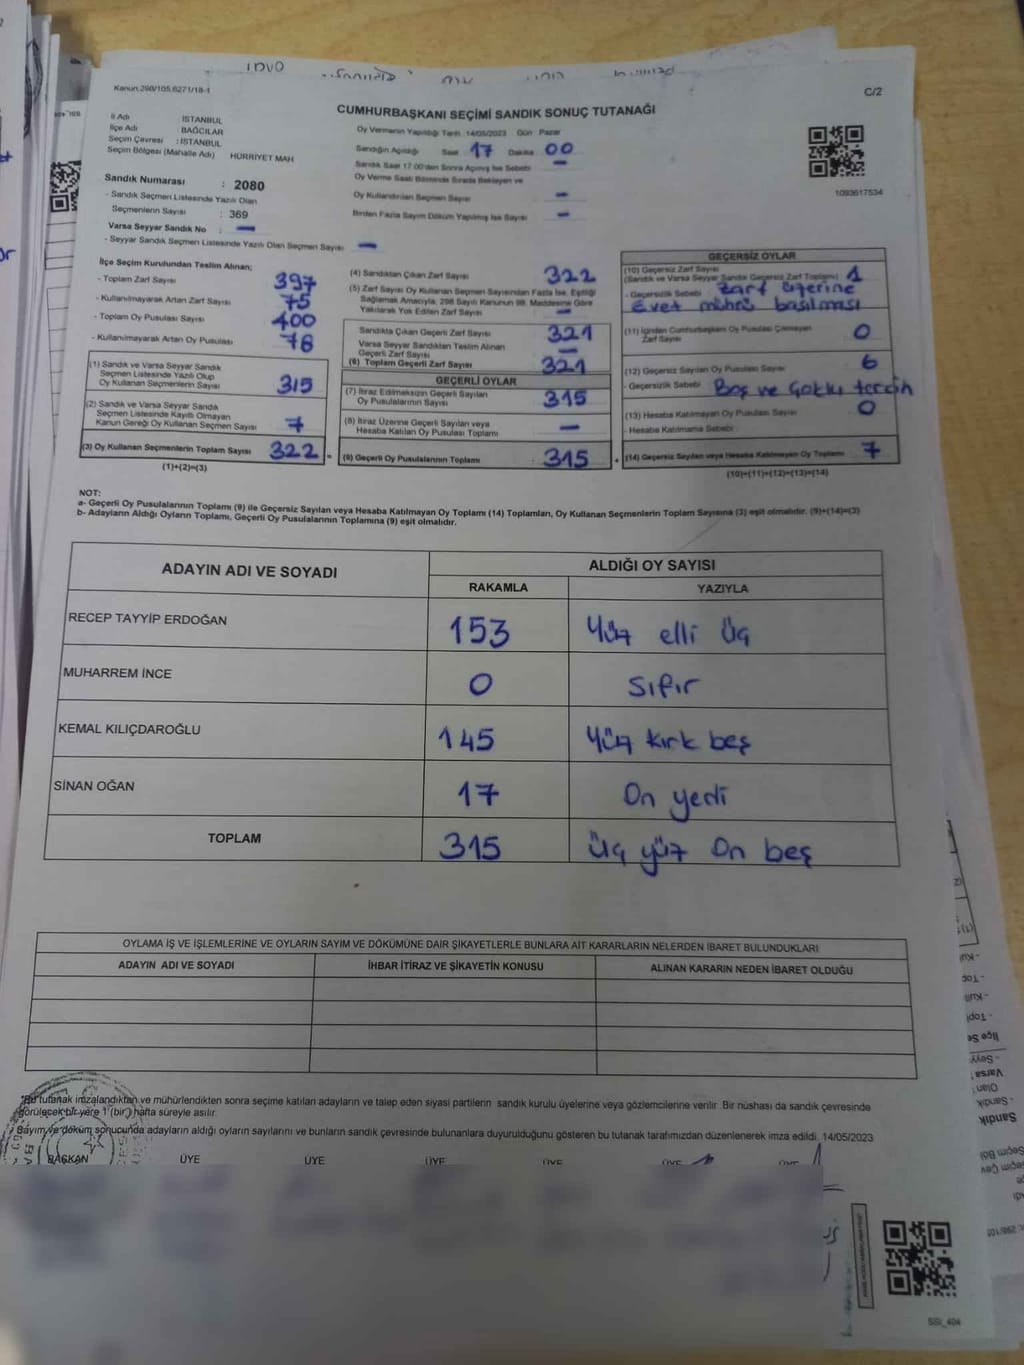 Kanun.298/105,6271/18-1
C/2
CUMHURBAŞKANI SEÇİMİ SANDIK SONUÇ TUTANAĞI
İl Adı İSTANBUL
İlçe Adı BAĞCILAR
Seçim Çevresi : İSTANBUL
Seçim Bölgesi (Mahalle Adı) HÜRRİYET MAH
Sandık Numarası : 2080
- Sandık Seçmen Listesinde Yazılı Olan
Seçmenlerin Sayısı : 369
Varsa Seyyar Sandık No : —
- Seyyar Sandık Seçmen Listesinde Yazılı Olan Seçmen Sayısı —
Oy Vermenin Yapıldığı Tarih 14/05/2023 Gün Pazar
Sandığın Açıldığı Saat 17 Dakika 00
Sandık Saat 17.00'den Sonra Açılmış İse Sebebi —
Oy Verme Saati Bitiminde Sırada Bekleyen ve
Oy Kullandırılan Seçmen Sayısı —
Birden Fazla Sayım Döküm Yapılmış İse Sayısı —
1093617534
İlçe Seçim Kurulundan Teslim Alınan;
- Toplam Zarf Sayısı 397
- Kullanılmayarak Artan Zarf Sayısı 75
- Toplam Oy Pusulası Sayısı 400
- Kullanılmayarak Artan Oy Pusulası 78
(1) Sandık ve Varsa Seyyar Sandık
Seçmen Listesinde Yazılı Olup
Oy Kullanan Seçmenlerin Sayısı 315
(2) Sandık ve Varsa Seyyar Sandık
Seçmen Listesinde Kayıtlı Olmayan
Kanun Gereği Oy Kullanan Seçmen Sayısı 7
(3) Oy Kullanan Seçmenlerin Toplam Sayısı 322
(1)+(2)=(3)
(4) Sandıktan Çıkan Zarf Sayısı 322
(5) Zarf Sayısı Oy Kullanan Seçmen Sayısından Fazla İse, Eşitliği
Sağlamak Amacıyla, 298 Sayılı Kanunun 98. Maddesine Göre
Yakılarak Yok Edilen Zarf Sayısı —
Sandıkta Çıkan Geçerli Zarf Sayısı 321
Varsa Seyyar Sandıktan Teslim Alınan
Geçerli Zarf Sayısı —
(6) Toplam Geçerli Zarf Sayısı 321
GEÇERLİ OYLAR
(7) İtiraz Edilmeksizin Geçerli Sayılan
Oy Pusulalarının Sayısı 315
(8) İtiraz Üzerine Geçerli Sayılan veya
Hesaba Katılan Oy Pusulası Toplamı —
(9) Geçerli Oy Pusulalarının Toplamı : 315
GEÇERSİZ OYLAR
(10) Geçersiz Zarf Sayısı
(Sandık ve Varsa Seyyar Sandık Geçersiz Zarf Toplamı) 1
- Geçersizlik Sebebi Zarf üzerine
Evet mührü basılması
(11) İçinden Cumhurbaşkanı Oy Pusulası Çıkmayan
Zarf Sayısı 0
(12) Geçersiz Sayılan Oy Pusulası Sayısı 6
- Geçersizlik Sebebi Boş ve Çoklu tercih
(13) Hesaba Katılmayan Oy Pusulası Sayısı 0
- Hesaba Katılmama Sebebi
(14) Geçersiz Sayılan veya Hesaba Katılmayan Oy Toplamı 7
(10)+(11)+(12)+(13)=(14)
NOT:
a- Geçerli Oy Pusulalarının Toplamı (9) ile Geçersiz Sayılan veya Hesaba Katılmayan Oy Toplamı (14) Toplamları, Oy Kullanan Seçmenlerin Toplam Sayısına (3) eşit olmalıdır. (9)+(14)=(3)
b- Adayların Aldığı Oyların Toplamı, Geçerli Oy Pusulalarının Toplamına (9) eşit olmalıdır.
ADAYIN ADI VE SOYADI
ALDIĞI OY SAYISI
RAKAMLA YAZIYLA
RECEP TAYYİP ERDOĞAN 153 Yüz elli üç
MUHARREM İNCE 0 Sıfır
KEMAL KILIÇDAROĞLU 145 Yüz kırk beş
SİNAN OĞAN 17 On yedi
TOPLAM 315 üç yüz On beş
OYLAMA İŞ VE İŞLEMLERİNE VE OYLARIN SAYIM VE DÖKÜMÜNE DAİR ŞİKAYETLERLE BUNLARA AİT KARARLARIN NELERDEN İBARET BULUNDUKLARI
ADAYIN ADI VE SOYADI İHBAR İTİRAZ VE ŞİKAYETİN KONUSU ALINAN KARARIN NEDEN İBARET OLDUĞU
*Bu tutanak imzalandıktan ve mühürlendikten sonra seçime katılan adayların ve talep eden siyasi partilerin sandık kurulu üyelerine veya gözlemcilerine verilir. Bir nüshası da sandık çevresinde
görülecek bir yere 1 (bir) hafta süreyle asılır.
Sayım ve döküm sonucunda adayların aldığı oyların sayılarını ve bunların sandık çevresinde bulunanlara duyurulduğunu gösteren bu tutanak tarafımızdan düzenlenerek imza edildi. 14/05/2023
BAŞKAN ÜYE ÜYE ÜYE ÜYE ÜYE ÜYE
SSI_404